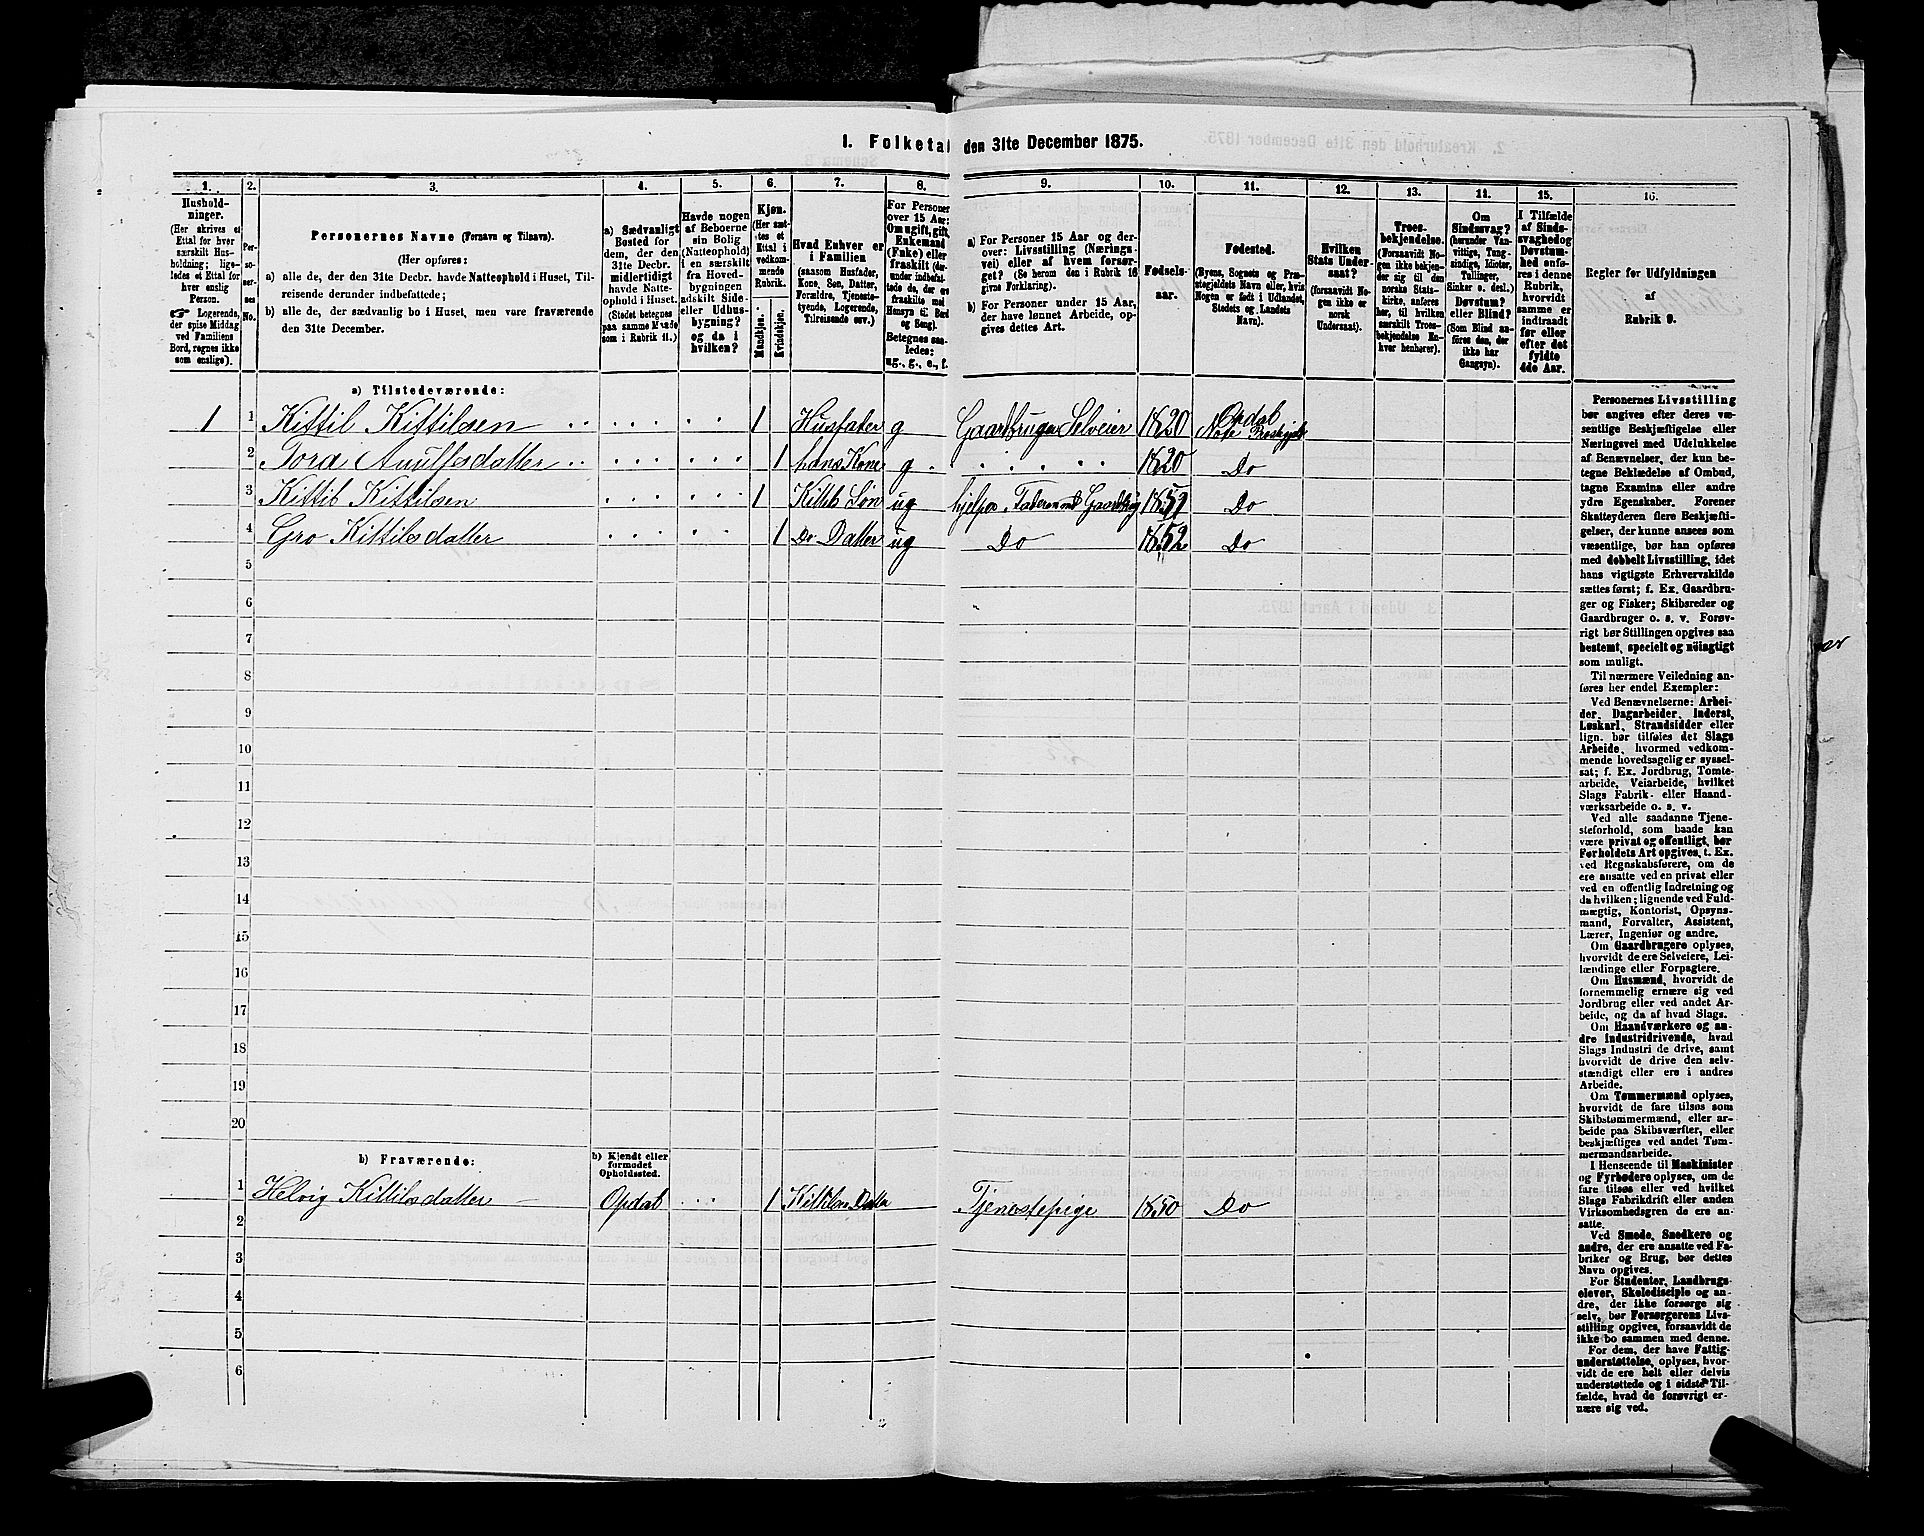 1. Folketal den 31te December 1875.
1.
2.
3.
4.
5.
6.
7.
8.
9.
10.
11.
12.
13.
11.
15.
16.
Hushold-
ninger.
(Her skrives et
Ettal for hver
særskilt Hus-
holdning; lige-
ledes et Ettal for
hver enslig
Person.
☞ Logerende,
der spise Middag
ved Familiens
Bord, regnes ikke
som enslige).
Per-
so-
ner-
nes
No.
Personernes Navne (Fornavn og Tilnavn).
(Her opføres:
a) alle de, der den 31te Decbr. havde Natteophold i Huset, Til-
reisende derunder indbefattede;
b) alle de, der sædvanlig bo i Huset, men vare fraværende
den 31te December.
a) Sædvanligt
Bosted for
dem, der den
31te Decbr.
midlertidigt
havde Natte-
ophold i Huset.
(Stedet betegnes
paa samme Maade
som i Rubrik 11.)
Havde nogen
af Beboerne
sin Bolig
(Natteophold)
i en særskilt
fra Hoved-
bygningen
adskilt Side-
eller Udhus-
bygning?
og da i
hvilken?
Kjøn.
(Her sæt-
tes et
Ettal i
vedkom-
mende
Rubrik.
Mandkjøn.
Kvindekjøn.
Hvad Enhver er
i Familien
(saasom Husfader,
Kone, Søn, Datter,
Forældre, Tjeneste-
tyende, Logerende,
Tilreisende osv.)
For Personer
over 15 Aar:
Om ugift, gift,
Enkemand
(Enke) eller
fraskilt (der-
under indbefat-
tede de, der ere
fraskilte med
Hensyn til Bord
og Seng).
Betegnes saa-
ledes:
ug., g., e., f.
a) For Personer 15 Aar og der-
over: Livsstilling (Nærings-
vei) eller af hvem forsør-
get? (Se herom den i Rubrik 16
givne Forklaring).
b) For Personer under 15 Aar,
der have lønnet Arbeide, op-
gives dettes Art.
Fødsels-
aar.
Fødested.
(Byens, Sognets og Præ-
stegjeldets Navn eller, hvis
Nogen er født i Udlandet,
Stedets og Landets
Navn).
Hvilken
Stats Under-
saat?
(forsaavidt No-
gen ikke er
norsk
Undersaat).
Troes-
bekjendelse.
(Forsaavidt No-
gen ikke bekjen-
der sig til den
norske Stats-
kirke, anføres
her, til hvilken
særskilt Troes-
bekjendelse En-
hver henhører).
Om
Sindssvag?
(herunder Van-
vittige, Tung-
sindige, Idioter,
Tullinger,
Sinker o. desl.)
Døvstum?
eller Blind?
(Som Blind an-
føres den, der
ikke har
Gangsyn).
I Tilfælde
af Sinds-
svaghed og
Døvstum-
hed anfø-
res i denne
Rubrik,
hvorvidt
samme er
indtraadt
før eller
efter det
fyldte
4de Aar.
Regler for Udfyldningen
af
Rubrik 9.
a) Tilstedeværende:
1 1 Kittil Kittilsen 1 Husfader g Gaardbruger Selveier 1820 Opdal
2 Tora Anulfsdatter 1 hans Kone g 1820 Do
3 Kittil Kittilsen 1 Kittils Søn ug hjelper Faderen med Gaardbrug 1851 Do
4 Gro Kittilsdatter 1 Do Datter ug Do 1852 Do
5
6
7
8
9
10
11
12
13
14
15
16
17
18
19
20
b) Fraværende:
b) Kjendt eller
formodet
Opholdssted.
1 Helvig Kittilsdatter Opdal 1 Kittilsens Datter Tjenestepige 1850 Do
2
3
4
5
6
Personernes Livsstilling
bør angives efter deres væ-
sentlige Beskjæftigelse eller
Næringsvei med Udelukkelse
af Benævnelser, der kun be-
tegne Beklædelse af Ombud,
tagne Examina eller andre
ydre Egenskaber. Forener
Skatteyderen flere Beskjæfti-
gelser, der kunne ansees som
væsentlige, bør han opføres
med dobbelt Livsstilling, idet
hans vigtigste Erhvervskilde
sættes først; f. Ex. Gaardbru-
ger og Fisker; Skibsreder og
Gaardbruger o. s. v. Forøv-
rigt bør Stillingen opgives saa
bestemt, specielt og nøiagtigt
som muligt.
Til nærmere Veiledning an-
føres her endel Exempler:
Ved Benævnelserne: Arbei-
der, Dagarbeider, Inderst,
Løskarl, Strandsidder eller
lign. bør tilføies det Slags
Arbeide, hvormed vedkom-
mende hovedsagelig er syssel-
sat; f. Ex. Jordbrug, Tomte-
arbeide, Veiarbeide, hvilket
Slags Fabrik- eller Haand-
værksarbeide o. s. v.
Ved alle saadanne Tjene-
steforhold, som baade kan
være privat og offentligt, bør
Forholdets Art opgives, f. Ex.
ved Regnskabsførere, om de
ere ansatte ved en privat eller
ved en offentlig Indretning og
da hvilken; lignende ved Fuld-
mægtig, Kontorist, Opsyns-
mand, Forvalter, Assistent,
Lærer, Ingeniør og andre.
Om Gaardbrugere oplyses,
hvorvidt de ere Selveiere, Lei-
lændinge eller Forpagtere.
Om Husmænd, hvorvidt de
fornemmelig ernære sig ved
Jordbrug eller ved andet Ar-
beide, og da af hvad Slags.
Om Haandværkere og an-
dre industridrivende, hvad
Slags Industri de drive, samt
hvorvidt de drive den selv-
stændigt eller ere i andres
Arbeide.
Om Tømmermænd oplyses,
hvorvidt de fare tilsøs som
Skibstømmermænd, eller ar-
beide paa Skibsværfter, eller
beskjæftiges ved andet Tøm-
mermandsarbeide.
I Henseende til Maskinister
og Fyrbødere oplyses, om de
fare tilsøs eller ved hvilket
Slags Fabrikdrift eller anden
Virksomhedsgren de ere an-
satte.
Ved Smede, Snedkere og
andre, der ere ansatte ved Fa-
briker og Brug, bør dettes
Navn opgives.
For Studenter, Landbrugs-
elever, Skoledisciple og an-
dre, der ikke forsørge sig
selv, bør Forsørgerens Livs-
stilling opgives, forsaavidt de
ikke bo sammen med denne.
For dem, der have Fattig-
understøttelse, oplyses, hvor-
vidt de ere helt eller delvis
understøttede og i sidste Til-
fælde, hvad de forøvrigt er-
nære sig ved.